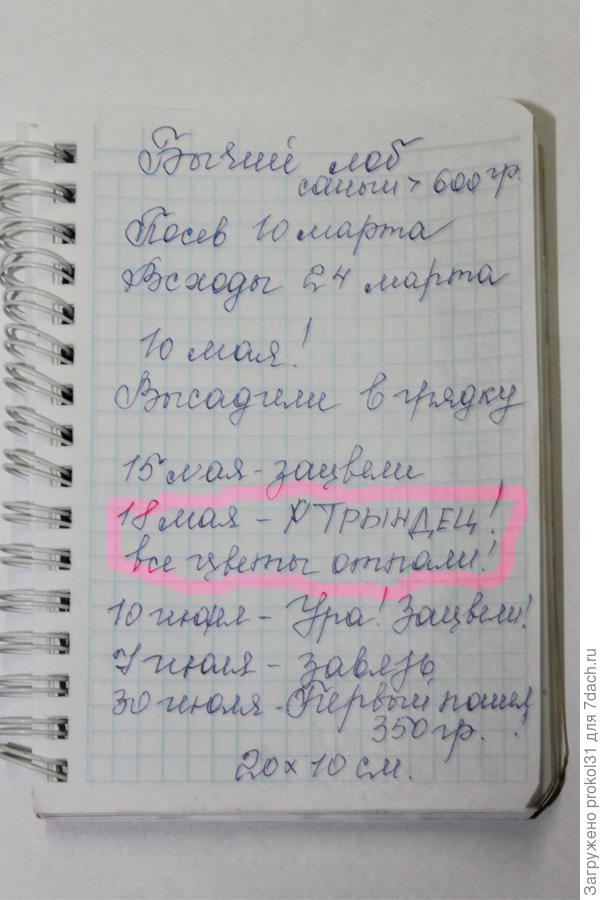 Бычий лоб
самый > 600 гр.
Посев 10 марта
Всходы 24 марта
10 мая!
Высадили в грядку
15 мая - зацвели
18 мая - ТРЫНДЕЦ!
все цветы отпали!
10 июня - Ура! Зацвели!
7 июля - завязь
30 июля - Первый пошел!
350 гр.
20 x 10 см.
Загружено prokol31 для 7dach.ru